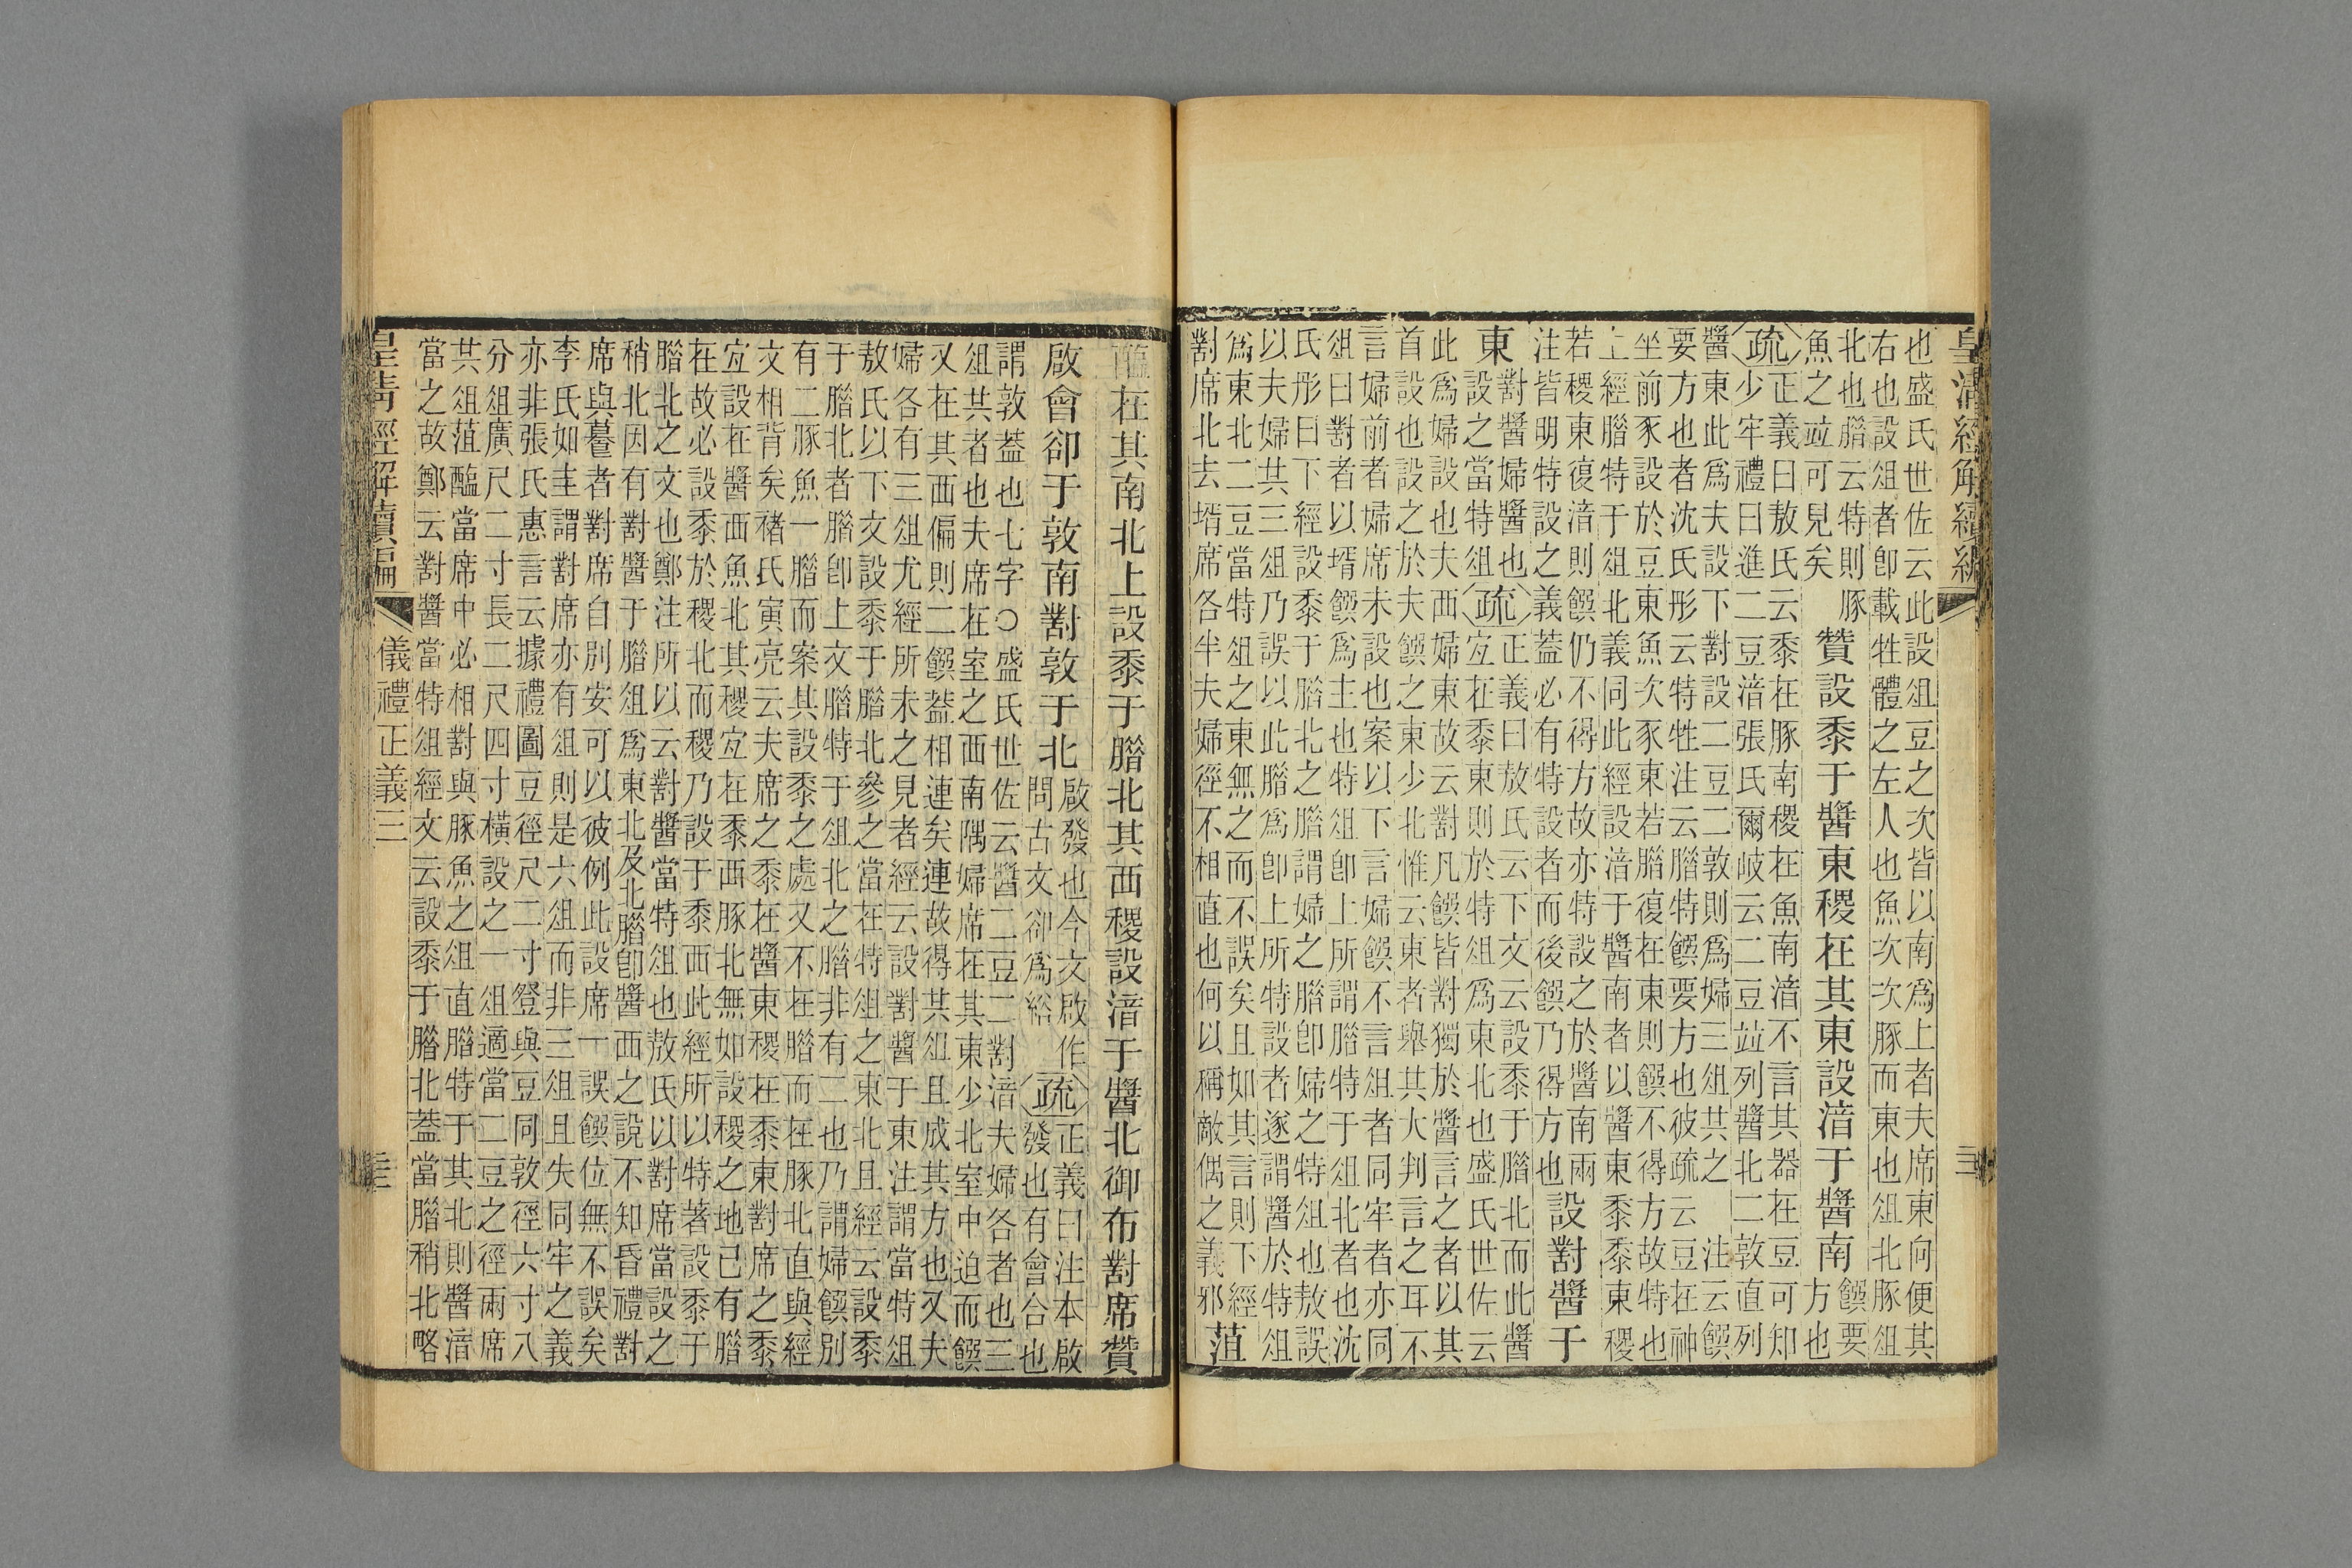 皇清經解續編
也盛氏世佐云此設俎豆之次皆以南爲上者夫席東向便其
右也設俎者卽載牲體之左人也魚次次豚而東也俎北豚俎
北也腊云特則豚
魚之竝可見矣
贊設黍于醬東稷在其東設湆于醬南
饌要
方也
疏
正義曰敖氏云黍在豚南稷在魚南湆不言其器在豆可知
少牢禮曰進二豆湆張氏爾岐云二豆竝列醬北二敦直列
醬東此爲夫設下對設二豆二敦則爲婦三俎共之 注云饌
要方也者沈氏彤云特牲注云腊特饌要方也彼疏云豆在神
坐前豕設於豆東魚次豕東若腊復在東則饌不得方故特也
上經腊特于俎北義同此經設湆于醬南者以醬東黍黍東稷
若稷東復湆則饌仍不得方故亦特設之於醬南兩
注皆明特設之義蓋必有特設者而後饌乃得方也
設對醬于
東
對醬婦醬也
設之當特俎
疏
正義曰敖氏云下文云設黍于腊北而此醬
宜在黍東則於特俎爲東北也盛氏世佐云
此爲婦設也夫西婦東故云對凡饌皆對獨於醬言之者以其
首設也設之於夫饌之東少北惟云東者舉其大判言之耳不
言婦前者婦席未設也案以下言婦饌不言俎者同牢者亦同
俎曰對者以壻饌爲主也特俎卽上所謂腊特于俎北者也沈
氏彤曰下經設黍于腊北之腊謂婦之腊卽婦之特俎也敖誤
以夫婦共三俎乃誤以此腊爲卽上所特設者遂謂醬於特俎
爲東北二豆當特俎之東無之而不誤矣且如其言則下經
對席北去壻席各半夫婦徑不相直也何以稱敵偶之義邪
菹
醢在其南北上設黍于腊北其西稷設湆于醬北御布對席贊
啟會卻于敦南對敦于北
啟發也今文啟作
開古文卻爲綌
疏
正義曰注本啟
發也有會合也
謂敦蓋也七字○盛氏世佐云醬二豆二對湆夫婦各者也三
俎共者也夫席在室之西南隅婦席在其東少北室中迫而饌
又在其西偏則二饌蓋相連矣連故得共俎且成其方也又夫
婦各有三俎尤經所未之見者經云設對醬于東注謂當特俎
敖氏以下文設黍于腊北參之當在特俎之東北且經云設黍
于腊北者腊卽上文腊特于俎北之腊非有二也乃謂婦饌別
有二豚魚一腊而案其設黍之處又不在腊而在豚北直與經
文相背矣褚氏寅亮云夫席之黍在醬東稷在黍東對席之黍
宜設在醬西魚北其稷宜在黍西豚北無如設稷之地已有腊
在故必設黍於稷北而稷乃設于黍西此經所以特著設黍于
腊北之文也鄭注所以云對醬當特俎也敖氏以對席當設之
稍北因有對醬于腊俎爲東北及北腊卽醬西之說不知昏禮對
席與蕒者對席自別安可以彼例此設席一誤饌位無不誤矣
李氏如圭謂對席亦有俎則是六俎而非三俎且失同牢之義
亦非張氏惠言云據禮圖豆徑尺二寸豋與豆同敦徑六寸八
分俎廣尺二寸長二尺四寸橫設之一俎適當二豆之徑兩席
共俎菹醢當席中必相對與豚魚之俎直腊特于其北則醬湆
當之故鄭云對醬當特俎經文云設黍于腊北蓋當腊稍北略
皇清經解續編
儀禮正義三